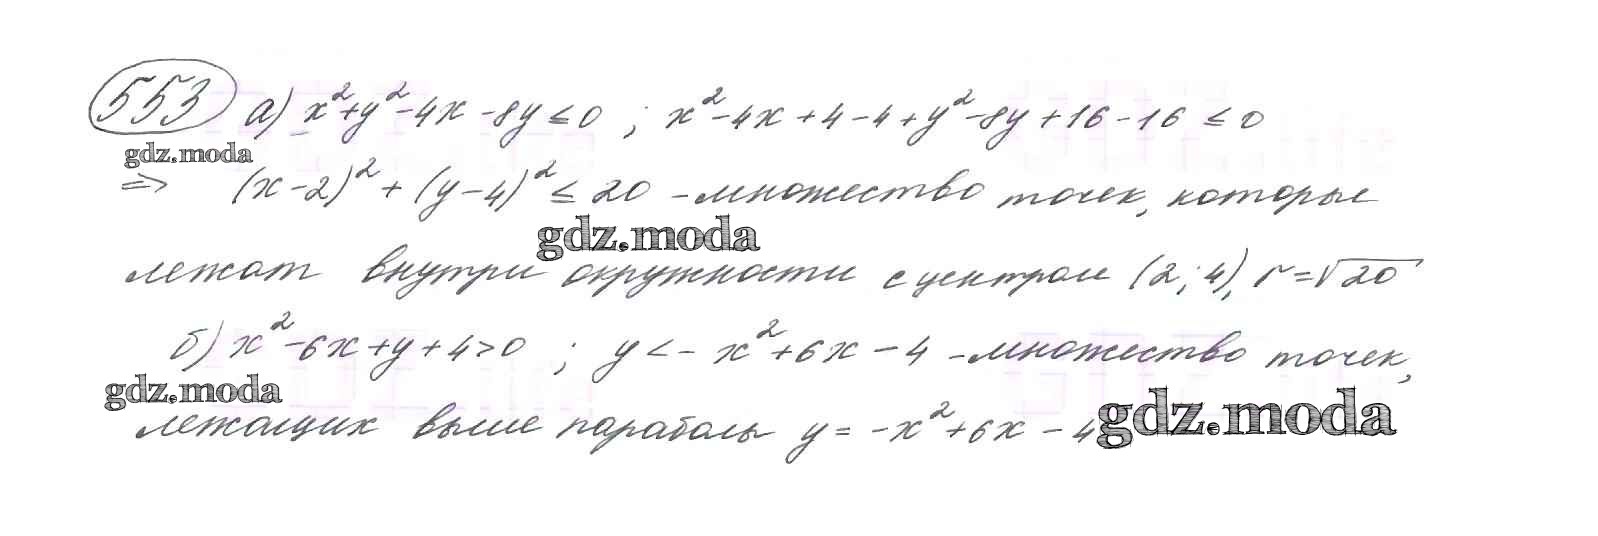 553 а) x²+y²-4x-8y≤0 ; x²-4x+4-4+y²-8y+16-16≤0
gdz.moda
=> (x-2)²+(y-4)²≤20 -множество точек, которые
gdz.moda
лежат внутри окружности с центром (2;4), r=√20
б) x²-6x+y+4>0 ; y<-x²+6x-4 -множество точек,
gdz.moda
лежащих выше параболы y=-x²+6x-4
gdz.moda